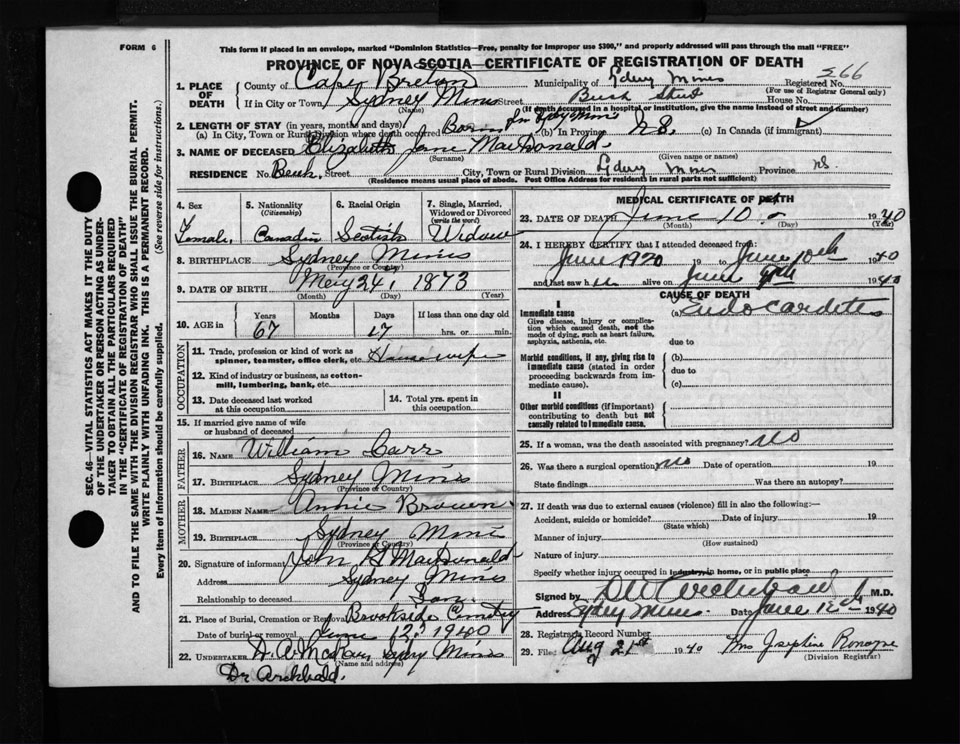 FORM 6
This form if placed in an envelope, marked "Dominion Statistics—Free, penalty for improper use $300," and properly addressed will pass through the mail "FREE"
PROVINCE OF NOVA SCOTIA—CERTIFICATE OF REGISTRATION OF DEATH
SEC. 46—VITAL STATISTICS ACT MAKES IT THE DUTY
OF THE UNDERTAKER OR PERSON ACTING AS UNDER-
TAKER TO OBTAIN ALL THE PARTICULARS REQUIRED
IN THE "CERTIFICATE OF REGISTRATION OF DEATH"
AND TO FILE THE SAME WITH THE DIVISION REGISTRAR WHO SHALL ISSUE THE BURIAL PERMIT.
WRITE PLAINLY WITH UNFADING INK. THIS IS A PERMANENT RECORD.
Every item of Information should be carefully supplied. (See reverse side for instructions.)
1. PLACE OF DEATH
County of Cape Breton Municipality of Sydney Mines Registered No. 366
(For use of Registrar General only)
If in City or Town Sydney Mines Street Beech Street House No.
(Name) (If death occurred in a hospital or institution, give the name instead of street and number)
2. LENGTH OF STAY (in years, months and days)
(a) In City, Town or Rural Division where death occurred Born in Sydney Mines (b) In Province N.S. (c) In Canada (if immigrant)
3. NAME OF DECEASED Elizabeth Jane MacDonald
(Surname) (Given name or names)
RESIDENCE No. Beech Street City, Town or Rural Division Sydney Mines Province N.S.
(Residence means usual place of abode. Post Office Address for residents in rural parts not sufficient)
4. Sex Female
5. Nationality (Citizenship) Canadian
6. Racial Origin Scotish
7. Single, Married, Widowed or Divorced (write the word) Widow
8. BIRTHPLACE Sydney Mines
(Province or Country)
9. DATE OF BIRTH May 24, 1873
(Month) (Day) (Year)
10. AGE in Years Months Days If less than one day old
67 17 hrs. or min.
OCCUPATION
11. Trade, profession or kind of work as spinner, teamster, office clerk, etc. Housewife
12. Kind of industry or business, as cotton-mill, lumbering, bank, etc.
13. Date deceased last worked at this occupation
14. Total yrs. spent in this occupation
15. If married give name of wife or husband of deceased
FATHER
16. NAME William Carr
17. BIRTHPLACE Sydney Mines
(Province or Country)
MOTHER
18. MAIDEN NAME Annie Brown
19. BIRTHPLACE Sydney Mines
(Province or Country)
20. Signature of informant John H. MacDonald
Address Sydney Mines
Relationship to deceased Son
21. Place of Burial, Cremation or Removal Brookside Cemetry
Date of burial or removal June 12, 1940
22. UNDERTAKER Sydney Mines
(Name and address)
Dr Archbald.
MEDICAL CERTIFICATE OF DEATH
23. DATE OF DEATH June 10 1940
(Month) (Day) (Year)
24. I HEREBY CERTIFY that I attended deceased from:
June 1920 19 to June 10th 1940
and last saw h alive on June 1940
CAUSE OF DEATH
I
Immediate cause
Give disease, injury or complication which caused death, not the mode of dying, such as heart failure, asphyxia, asthenia, etc.
(a) Endocarditis
due to
Morbid conditions, if any, giving rise to immediate cause (stated in order proceeding backwards from immediate cause).
(b)
due to
(c)
II
Other morbid conditions (if important) contributing to death but not causally related to immediate cause.
25. If a woman, was the death associated with pregnancy? no
26. Was there a surgical operation? no Date of operation 19
State findings Was there an autopsy?
27. If death was due to external causes (violence) fill in also the following:—
Accident, suicide or homicide? Date of injury 19
(State which)
Manner of injury
(How sustained)
Nature of injury
Specify whether injury occurred in industry, in home, or in public place
Signed by Archibald M.D.
Address Sydney Mines Date June 12th 1940
28. Registrars Record Number
29. File: Aug 21st 1940 Mrs Josephine Ronayne
(Division Registrar)